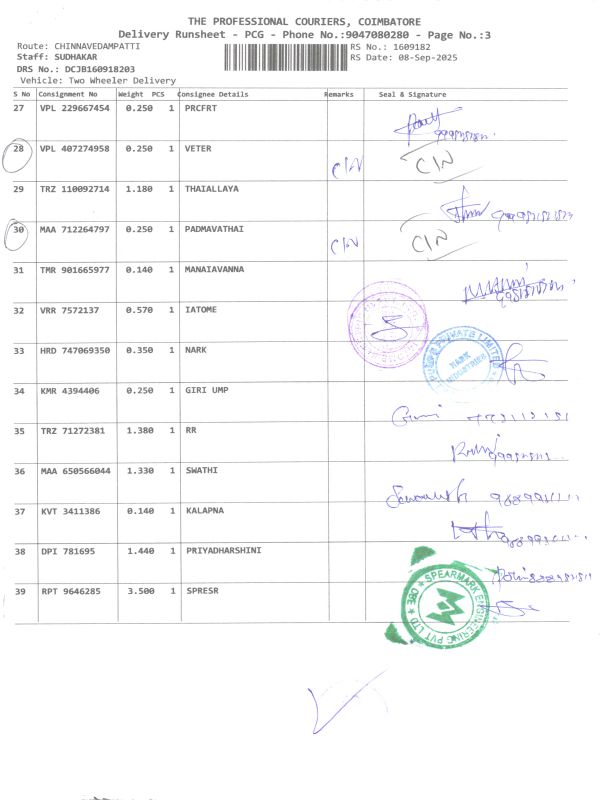 THE PROFESSIONAL COURIERS, COIMBATORE
Delivery Runsheet - PCG - Phone No.:9047080280 - Page No.:3
Route: CHINNAVEDAMPATTI RS No.: 1609182
Staff: SUDHAKAR RS Date: 08-Sep-2025
DRS No.: DCJB160918203
Vehicle: Two Wheeler Delivery
S No Consignment No Weight PCS Consignee Details Remarks Seal & Signature
27 VPL 229667454 0.250 1 PRCFRT
28 VPL 407274958 0.250 1 VETER C/N C/N
29 TRZ 110092714 1.180 1 THAIALLAYA
30 MAA 712264797 0.250 1 PADMAVATHAI C/N C/N
31 TMR 901665977 0.140 1 MANAIAVANNA
32 VRR 7572137 0.570 1 IATOME
33 HRD 747069350 0.350 1 NARK PRIVATE LIMITED NARK INDUSTRIES
34 KMR 4394406 0.250 1 GIRI UMP
35 TRZ 71272381 1.380 1 RR
36 MAA 650566044 1.330 1 SWATHI
37 KVT 3411386 0.140 1 KALAPNA
38 DPI 781695 1.440 1 PRIYADHARSHINI
39 RPT 9646285 3.500 1 SPRESR SPEARMARK ENGINEERING PVT LTD CBE